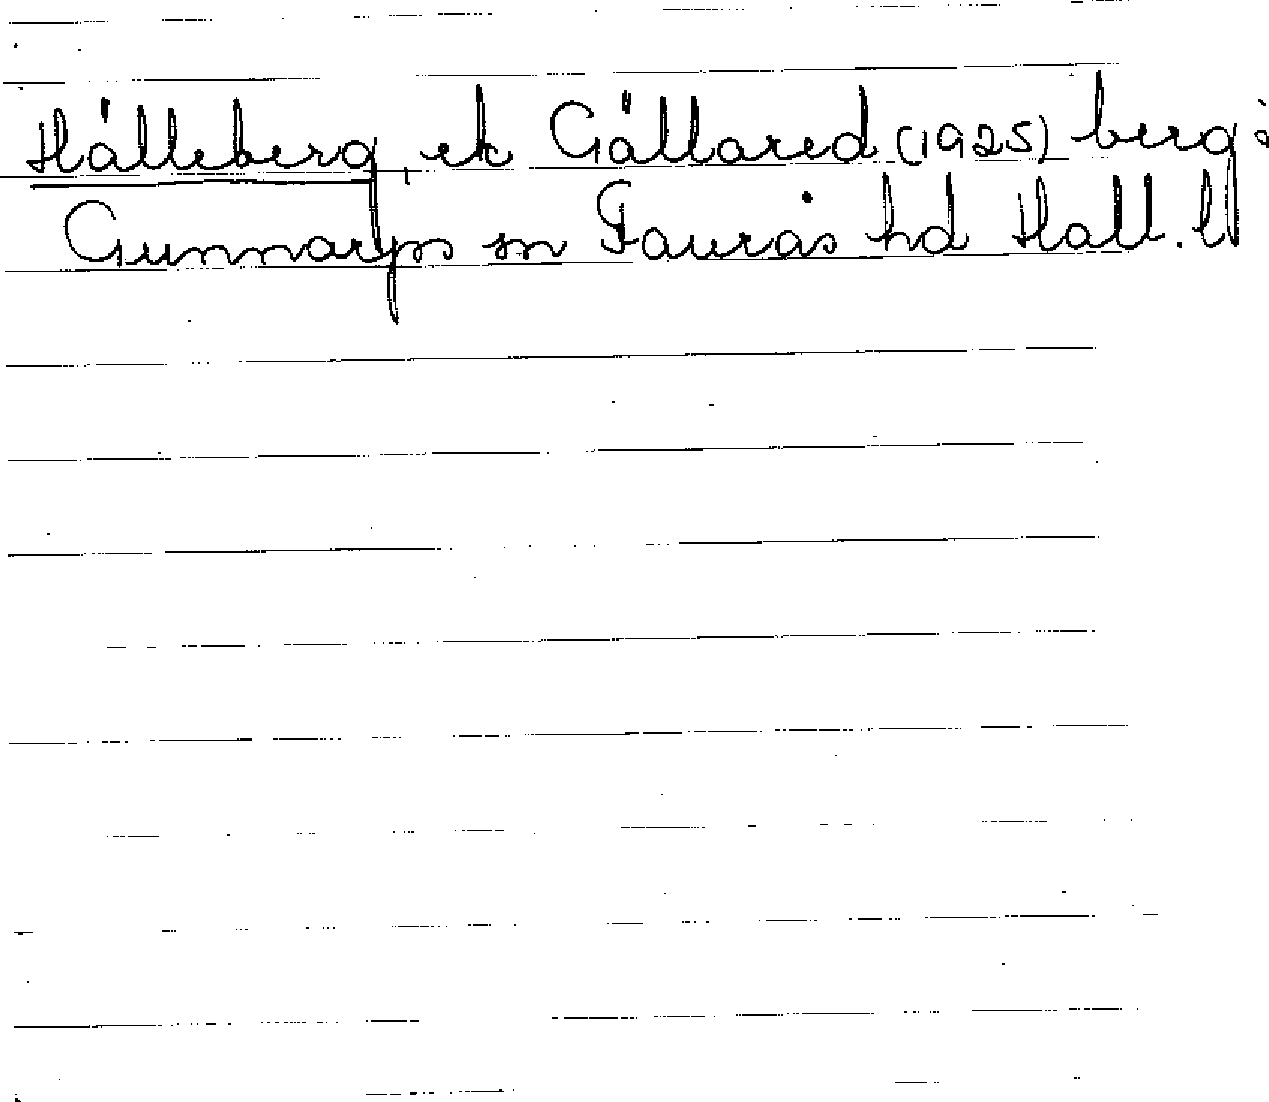 Hälleberg, ek Gällared (1925) berg:
Gunnarps sn Faurås hd Hall. ll